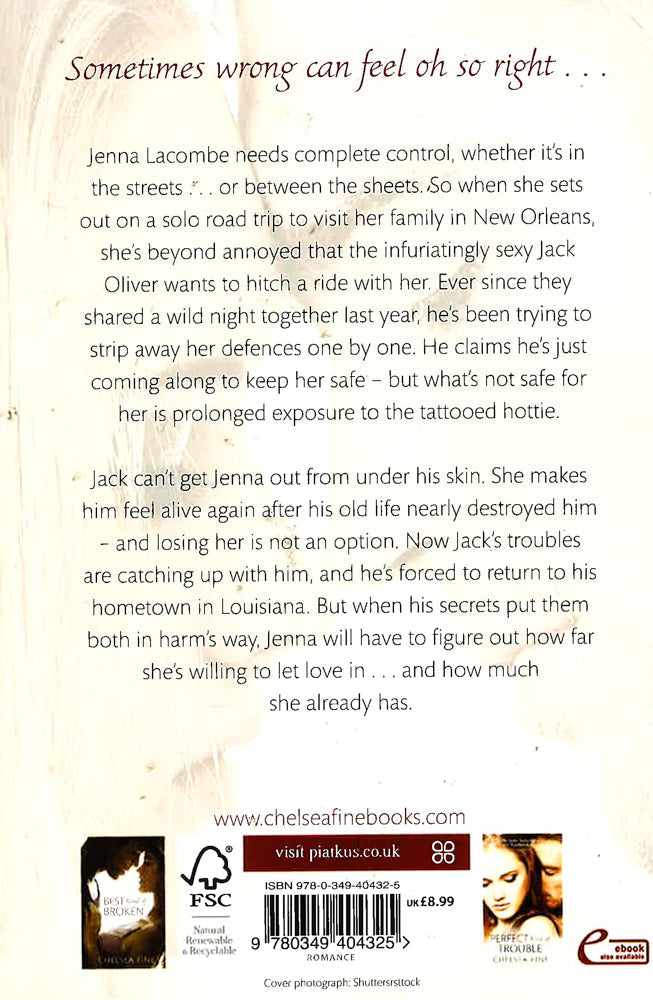 Sometimes wrong can feel oh so right . . .
Jenna Lacombe needs complete control, whether it's in
the streets . . . or between the sheets. So when she sets
out on a solo road trip to visit her family in New Orleans,
she's beyond annoyed that the infuriatingly sexy Jack
Oliver wants to hitch a ride with her. Ever since they
shared a wild night together last year, he's been trying to
strip away her defences one by one. He claims he's just
coming along to keep her safe – but what's not safe for
her is prolonged exposure to the tattooed hottie.
Jack can't get Jenna out from under his skin. She makes
him feel alive again after his old life nearly destroyed him
– and losing her is not an option. Now Jack's troubles
are catching up with him, and he's forced to return to his
hometown in Louisiana. But when his secrets put them
both in harm's way, Jenna will have to figure out how far
she's willing to let love in . . . and how much
she already has.
www.chelseafinebooks.com
BEST Kind of
BROKEN
CHELSEA FINE
®
FSC
Natural
Renewable
& Recyclable
visit piatkus.co.uk
ISBN 978-0-349-40432-5
UK £8.99
9 780349 404325 >
ROMANCE
PERFECT Kind of
TROUBLE
CHELSEA FINE
ebook
also available
Cover photograph: Shuttersrsttock